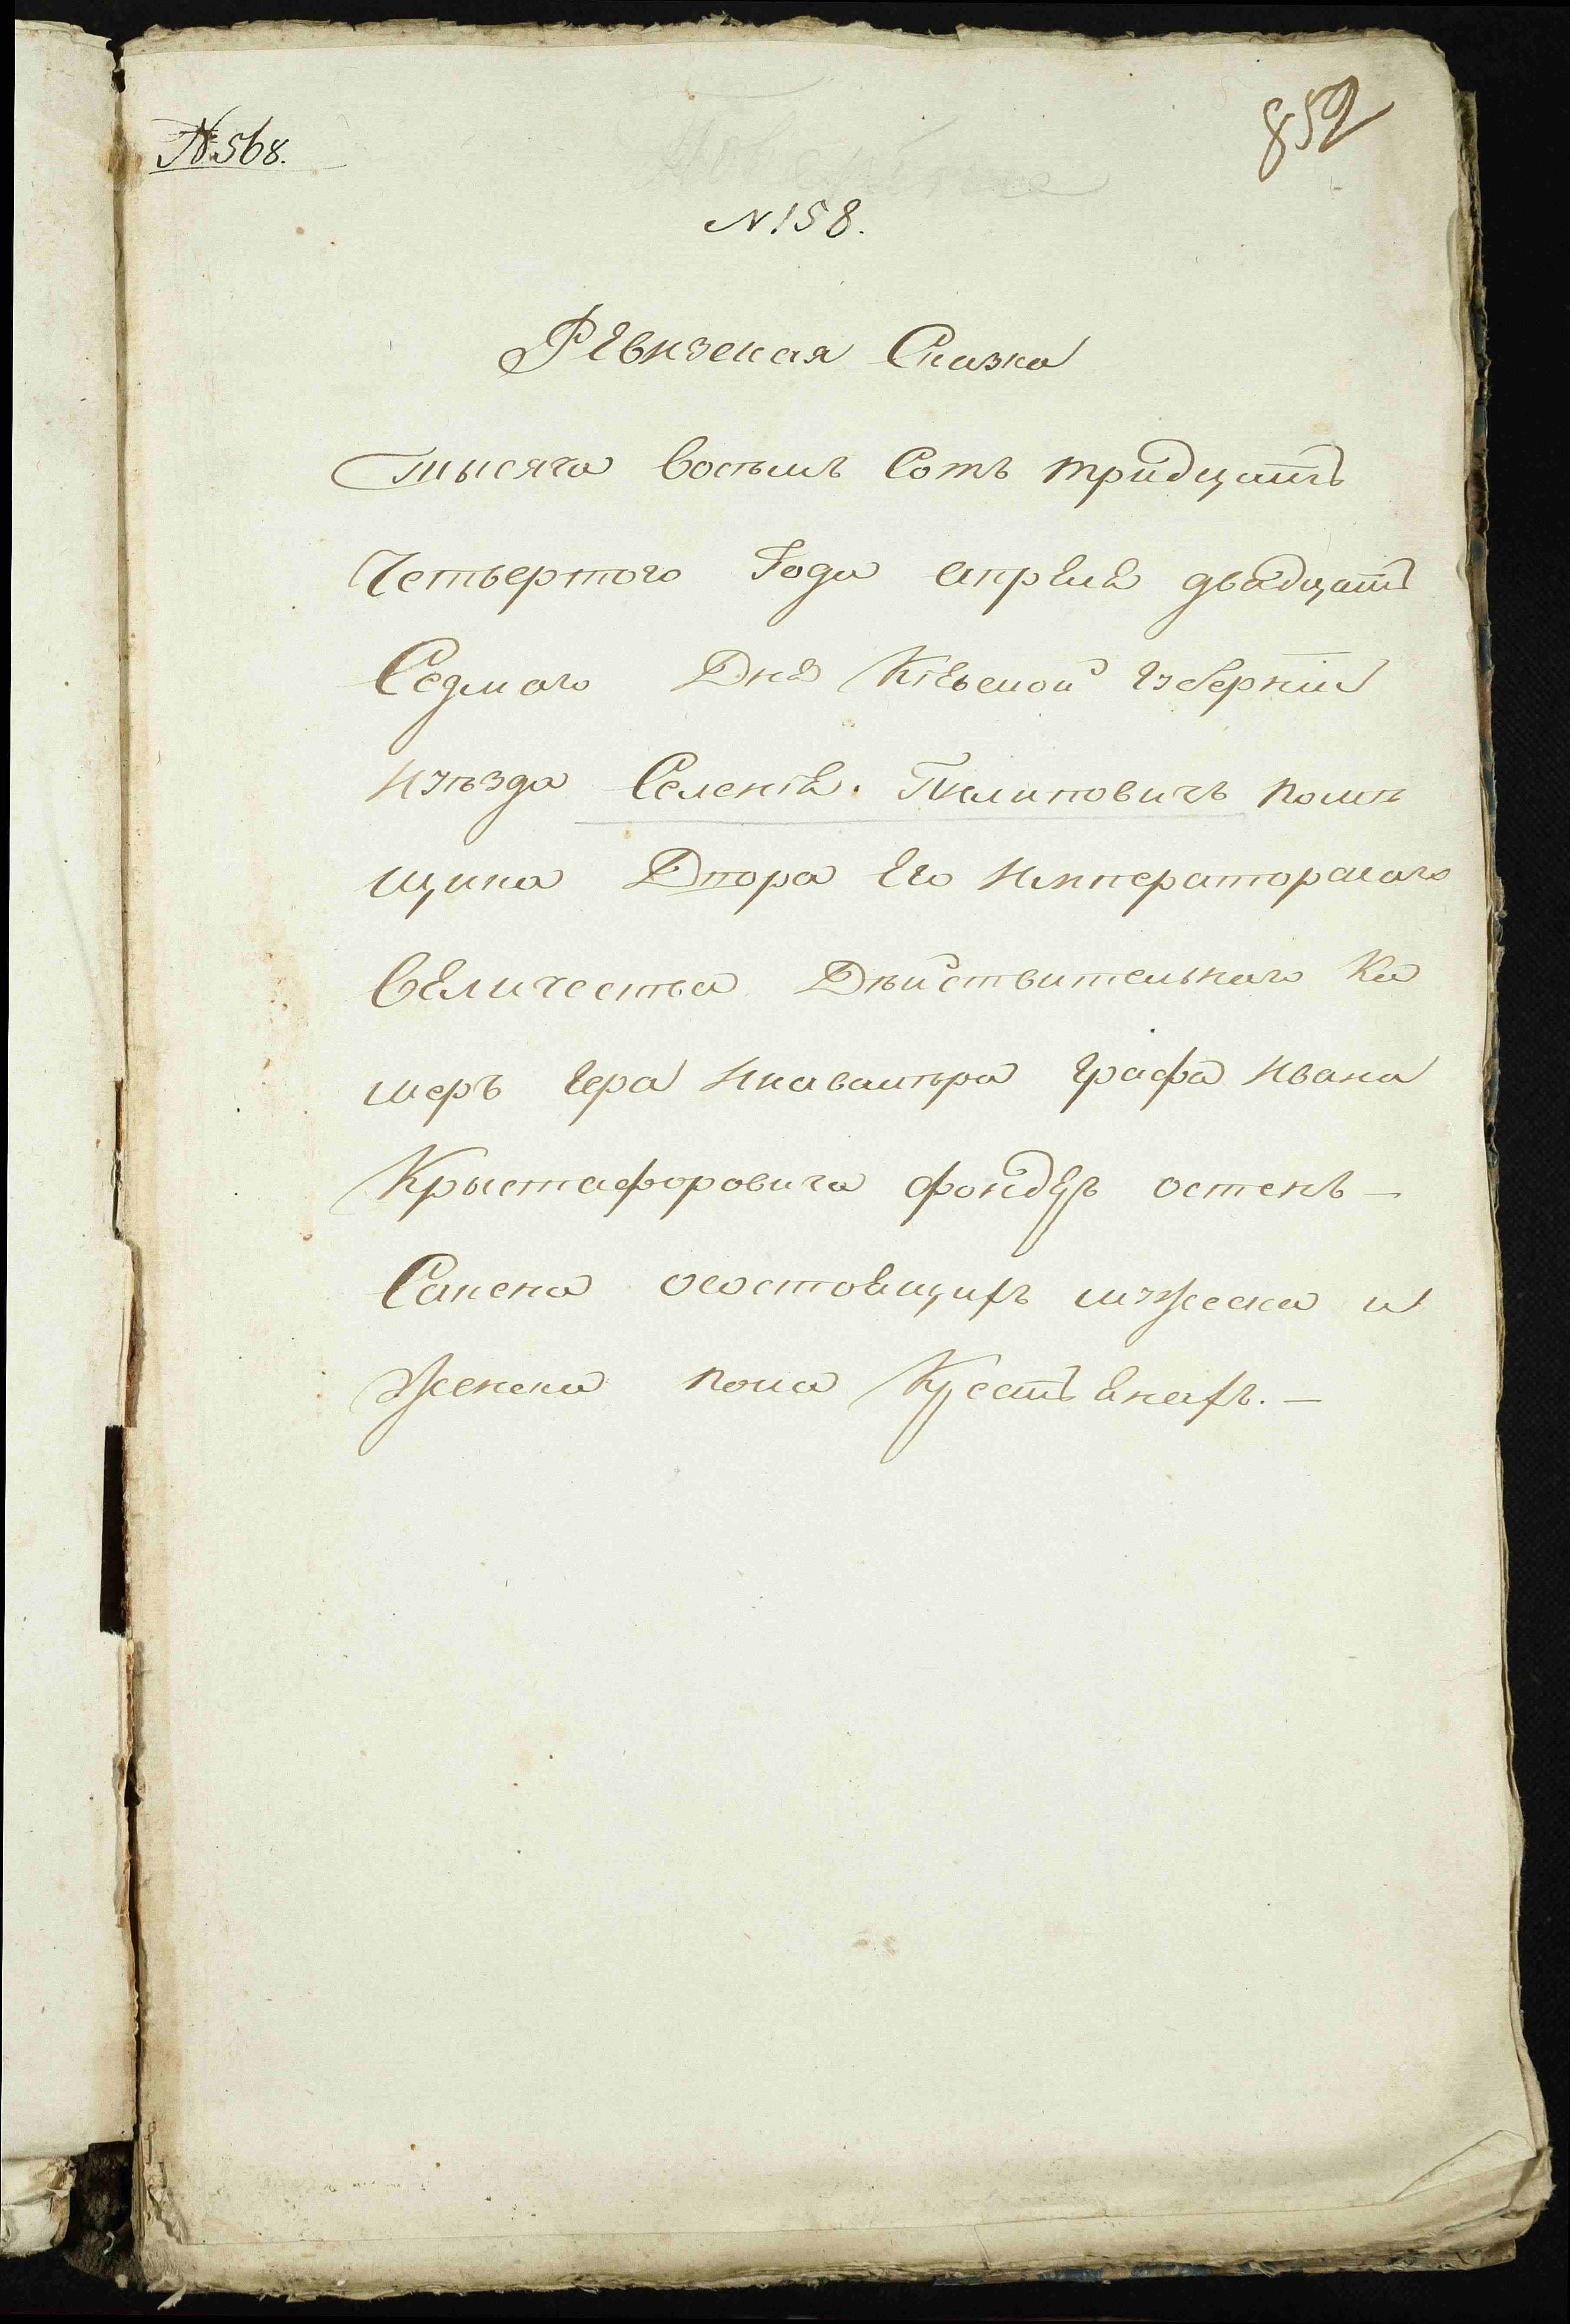 № 568.
852
N 158.
Ревизская Сказка
тысяча восьмъ Сотъ тридцать
Четьвертого Года апреля двадцать
Седмого Дня Кіевской Губерніи
иуѣзда Селенія. Пилиповичъ помѣ
щика Двора Его Императорскаго
Величества Дѣйствительнаго Ка
меръ гера Икавалѣра Графа Ивана
Крыстафоровича фондеръ остенъ —
Сакена осостоящихъ мужеска и
женска пола Крестьянахъ. —